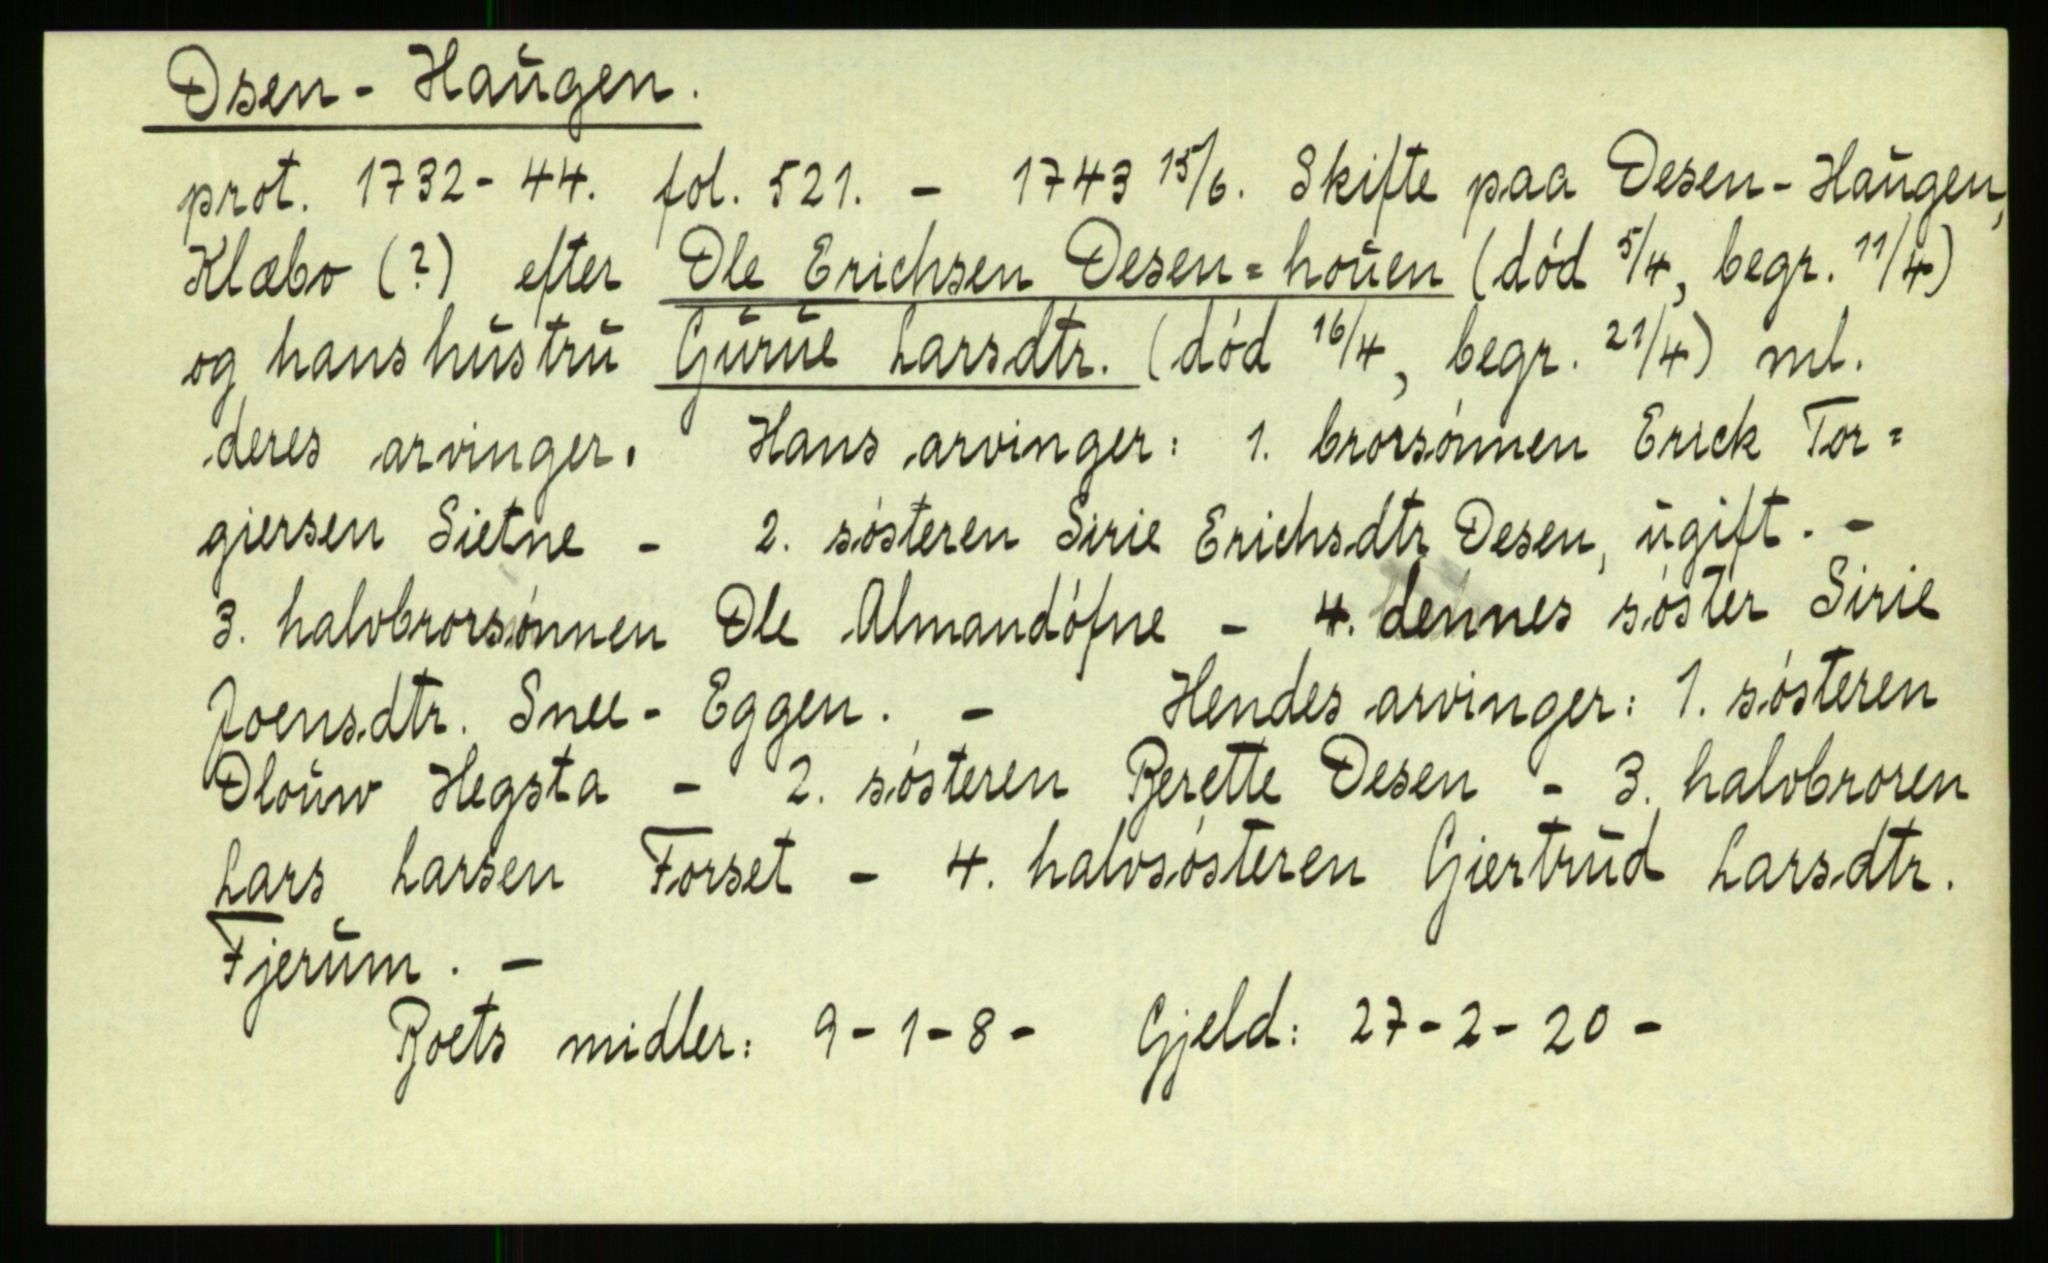 Osen - Haugen.
prot. 1732-44. fol. 521. - 1743 15/6. Skifte paa Oesen-Haugen,
Klæbo (?) efter Ole Erichsen Oesen=houen (død 5/4, begr. 11/4)
og hans hustru Gurue Larsdtr. (død 16/4, begr. 21/4) ml.
deres arvinger. Hans arvinger: 1. brorsønnen Erick Tor=
giersen Sietne - 2. søsteren Sirie Erichsdtr Oesen, ugift. -
3. halvbrorsønnen Ole Almandøfne - 4. dennes søster Sirie
Joensdtr. Snee-Eggen. - Hendes arvinger: 1. søsteren
Olouw Hegsta - 2. søsteren Berette Oesen - 3. halvbroren
Lars Larsen Forset - 4. halvsøsteren Giertrud Larsdtr.
Fjerum. -
Boets midler: 9-1-8- Gjeld: 27-2-20-